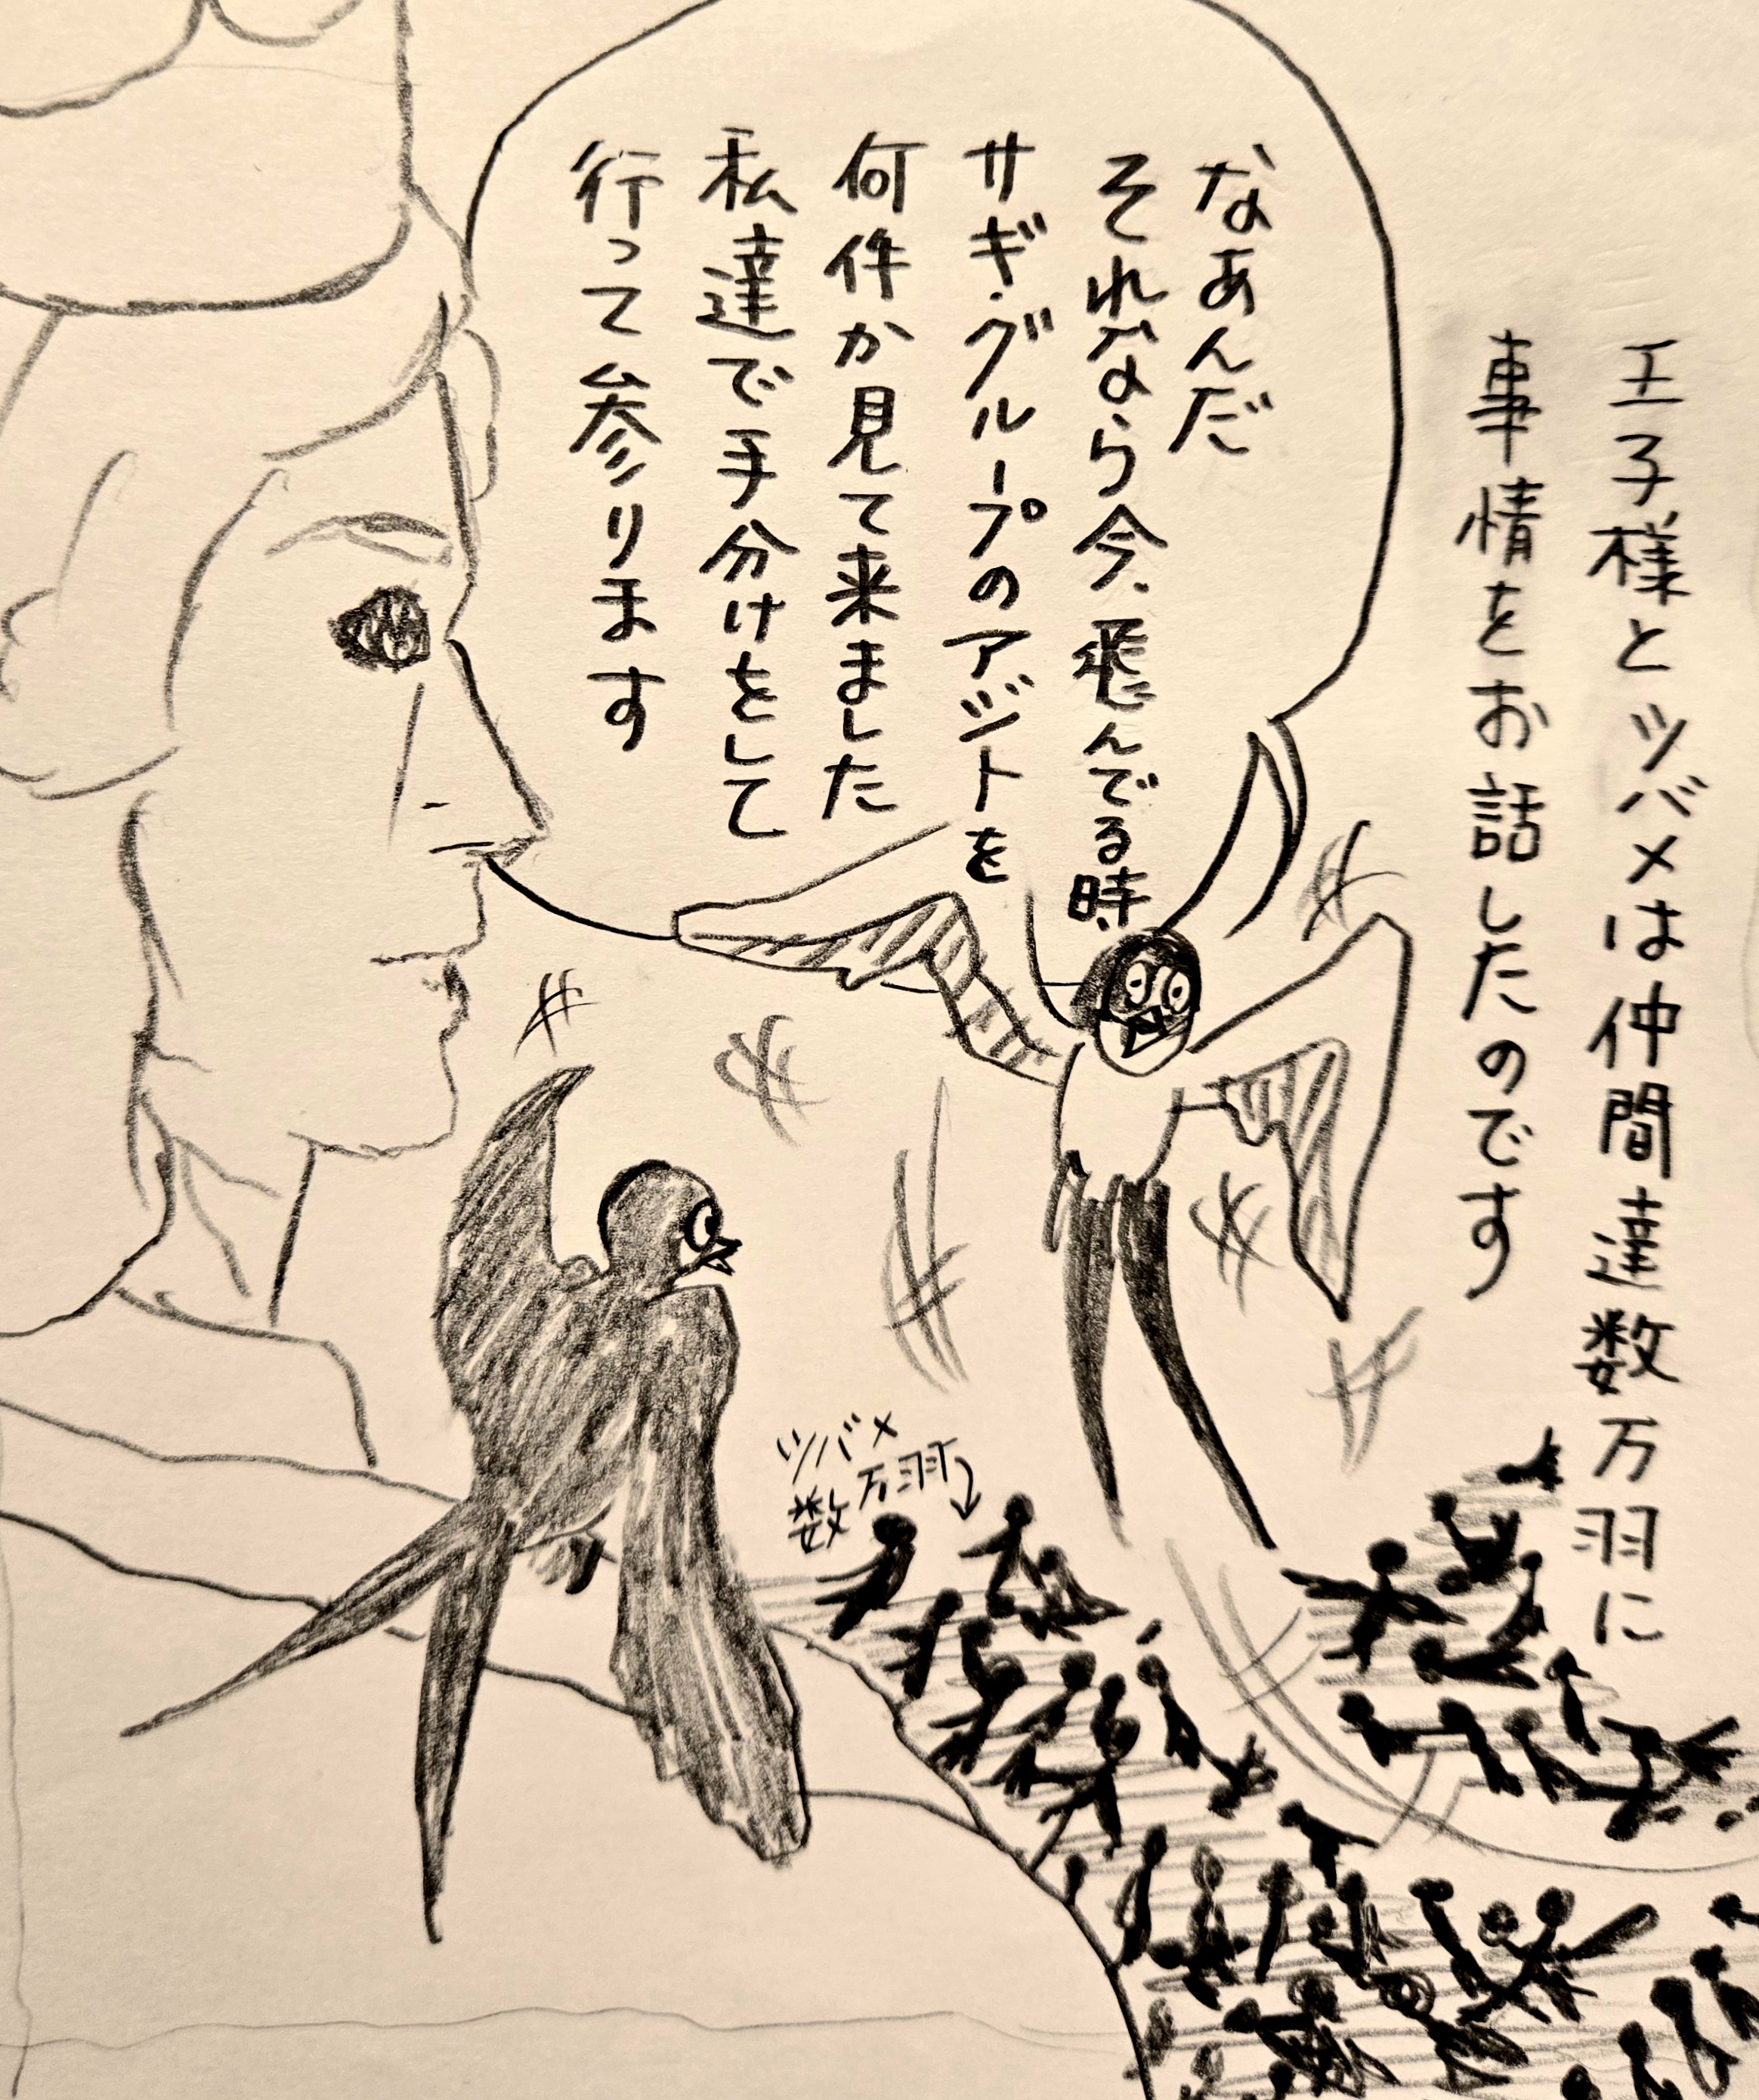 王子様とツバメは仲間達数万羽に
事情をお話したのです
なあんだ
それなら今、飛んでる時、
サギ・グループのアジトを
何件か見て来ました
私達で手分けをして
行って参ります
ツバメ
数万羽